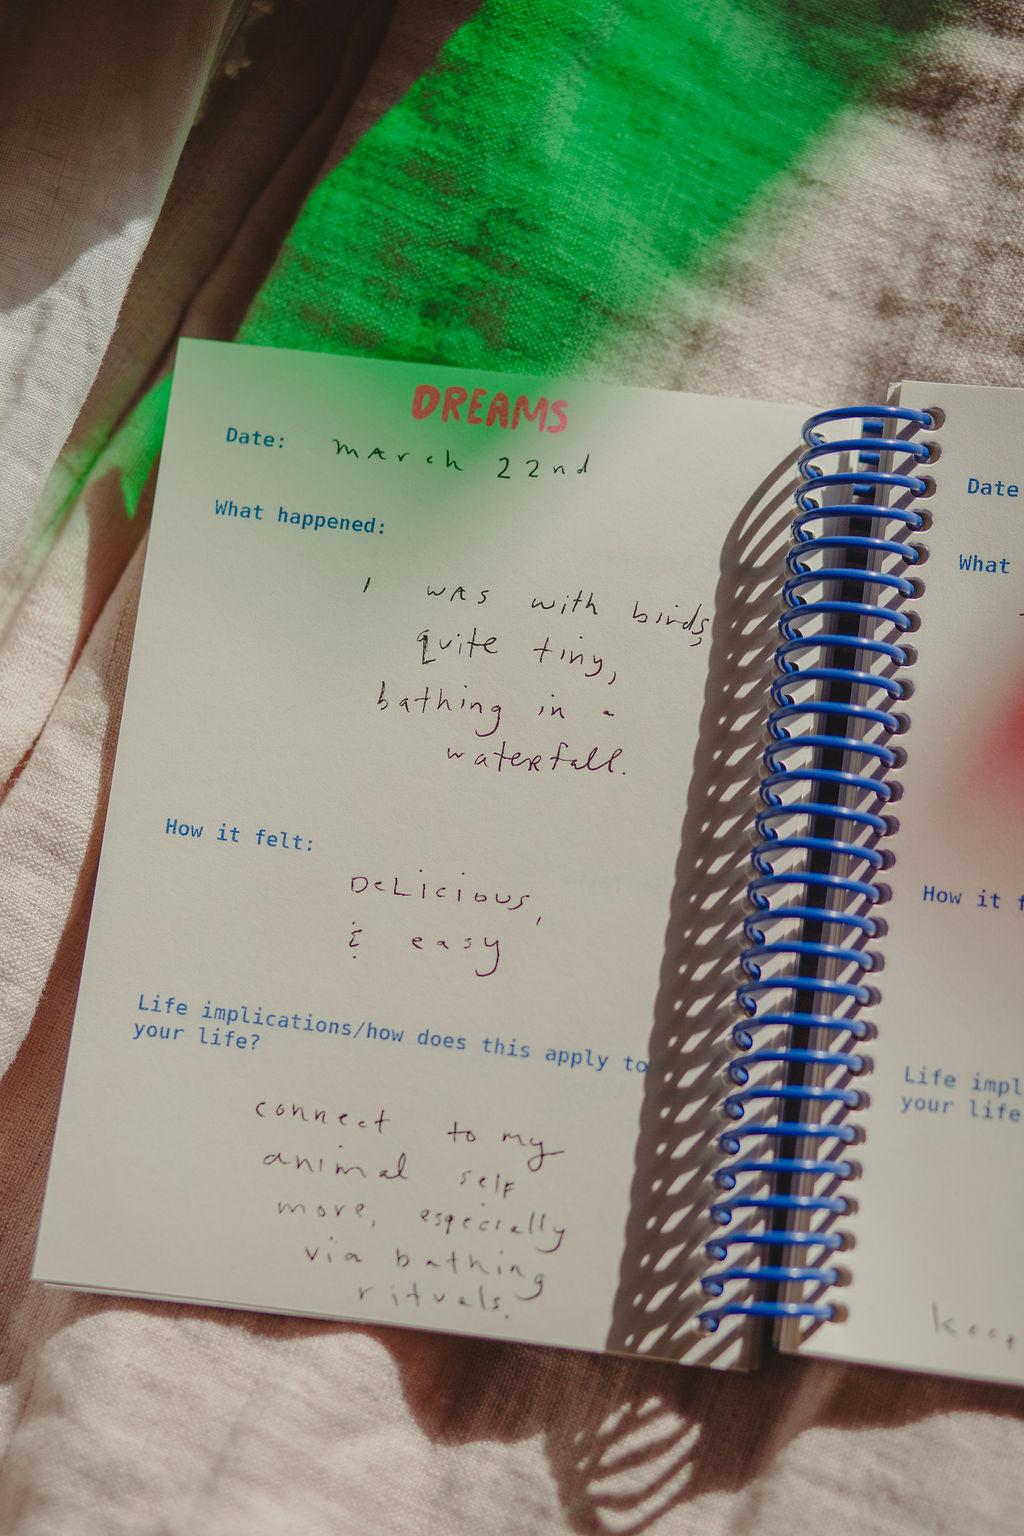 DREAMS
Date: March 22nd
What happened:
I was with birds,
quite tiny,
bathing in a
waterfall.
How it felt:
Delicious,
& easy
Life implications/how does this apply to
your life?
connect to my
animal self
more, especially
via bathing
rituals.
Date
What
How it f
Life impl
your life